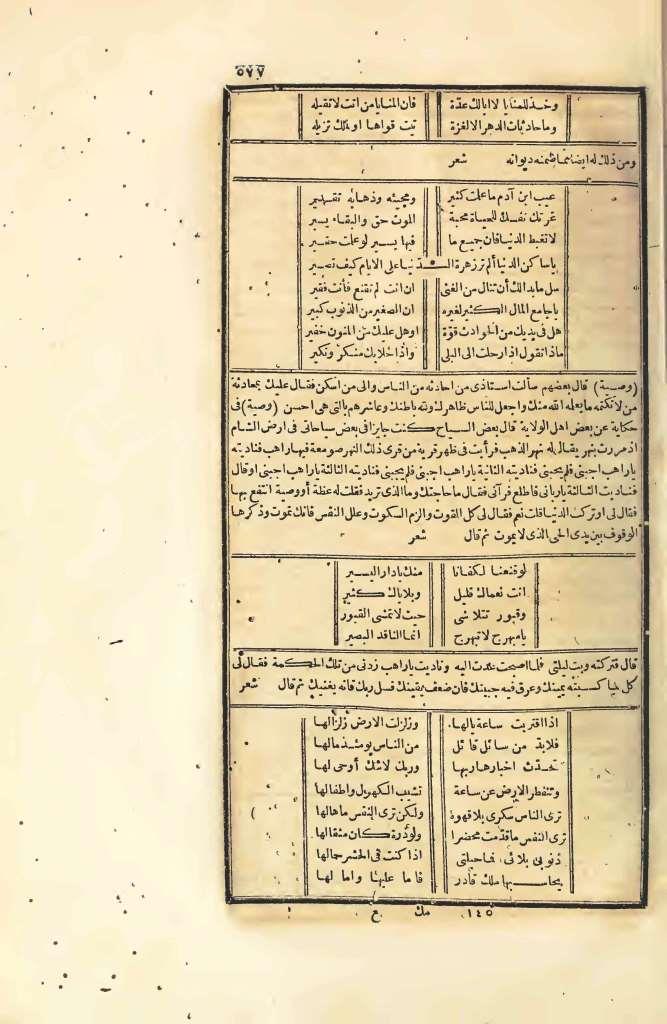 ٥٧٧
وخذ للمنايا لا ابالك عدة فان المنايا من اتت لا تقيله
وما حادثات الدهر الا لغزة تبت قواها او ملك تزيله
ومن ذلك له ايضا مما ضمنه ديوانه شعر
عجب ابن آدم ما علمت كثير ومجيئه وذهابه تقدير
غرتك نفسك للحياة محبة الموت حق والبقاء يسير
لا تغبط الدنيا فان جميع ما فيها يسير لو علمت حقير
يا ساكن الدنيا ألم تر زهرة الدنيا على الايام كيف تصير
سل ما بدا لك أن تنال من الغنى ان انت لم تقنع فأنت فقير
يا جامع المال الكثير لغيره ان الصغير من الذنوب كبير
هل فى يديك من الحوادث قوة او هل عليك من المنون خفير
ماذا تقول اذا رحلت الى البلى واذا خلا بك منكر ونكير
(وصية) قال بعضهم سألت استاذى من احادثه من الناس والى من اسكن فقال عليك بمحادثة
من لا تكتمه ما يعلمه الله منك واجعل للناس ظاهرك ولله باطنك وعاشرهم بالتى هى احسن (وصية) فى
حكاية عن بعض اهل الولاية قال بعض السياح كنت جايزا فى بعض سياحاتى فى ارض الشام
اذ مررت بنهر يقال له نهر الذهب فرأيت فى ظهر قرية من قرى ذلك النهر صومعة فيها راهب فناديته
يا راهب اجبنى فلم يجبنى فناديته الثانية يا راهب اجبنى فلم يجبنى فناديته الثالثة يا راهب اجبنى او قال
فناديت الثالثة يا ربانى فاطلع فرآنى فقال ما حاجتك وما الذى تريد فقلت له عظة أو وصية انتفع بها
فقال لى او تركت الدنيا قلت نعم فقال لى كل القوت والزم السكوت وعلل النفس فانك تموت وذكرها
الوقوف بين يدى الحى الذى لا يموت ثم قال شعر
لو قنعنا لكفانا منك يا دار اليسير
انت نعماك قليل وبلاياك كثير
وقبور تتلاشى حيث لا تمشى القبور
يا مبهرج لا تبهرج انما الناقد البصير
قال فتركته وبت ليلتى فلما اصبحت غدت اليه وناديت يا راهب زدنى من تلك الحكمة فقال لى
كل ما كسبته يمينك وعرق فيه جبينك فان ضعف يقينك فسل ربك فانه يغنيك ثم قال شعر
اذا اقتربت ساعة يالها وزلزلت الارض زلزالها
فلابد من سائل قائل من الناس يومئذ مالها
تحدث اخبارها ربها وربك لا شك أوحى لها
وتنفطر الارض عن ساعة تشيب الكهول واطفالها
ترى الناس سكرى بلا قهوة ولكن ترى النفس ما هالها
ترى النفس ما قدمت محضرا ولو ذرة كان مثقالها
ذنوبى بلائى فما حيلتى اذا كنت فى الحشر حمالها
يحاسبها ملك قادر فاما عليها واما لها
١٤٥ مك ع